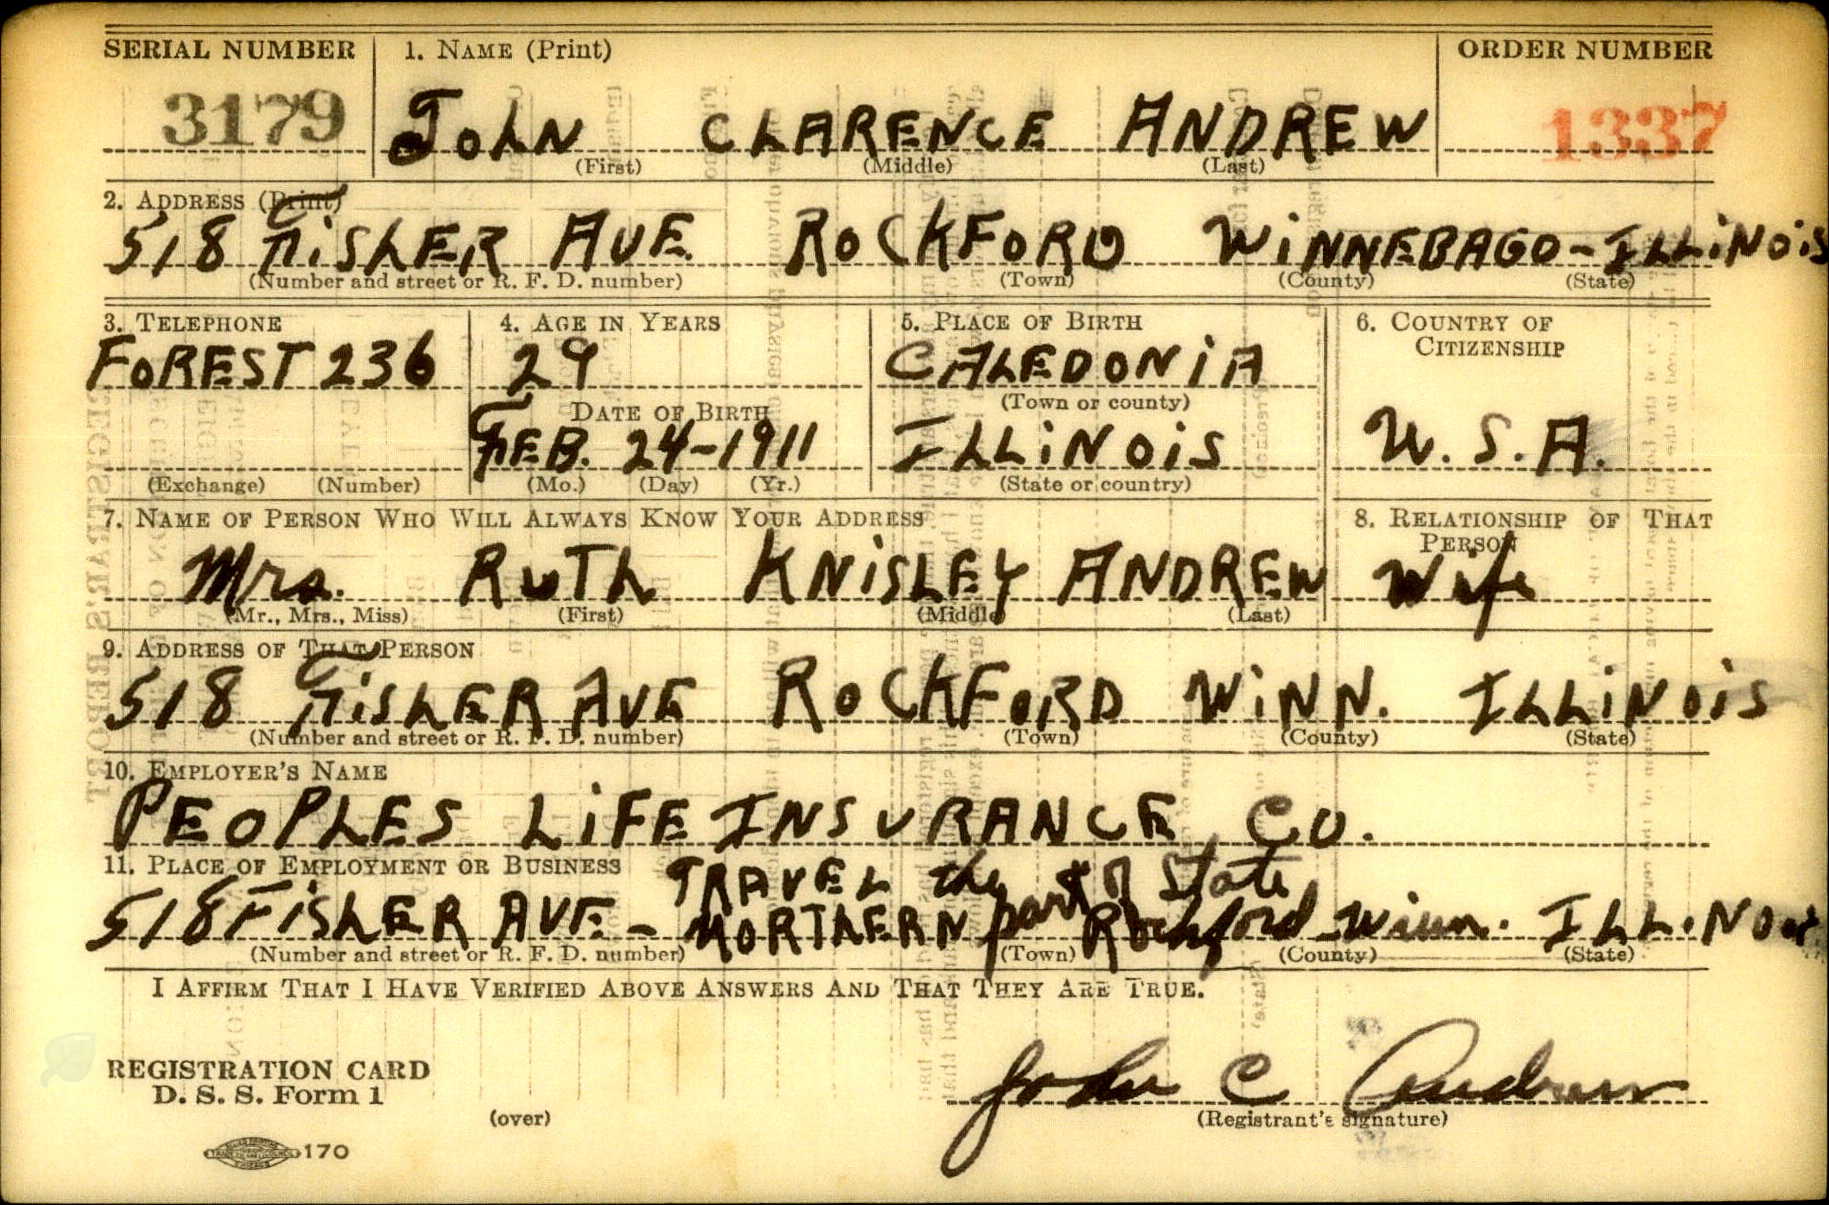 SERIAL NUMBER 1. NAME (Print) ORDER NUMBER
3179 JOHN CLARENCE ANDREW 1337
(First) (Middle) (Last)
2. ADDRESS (Print)
518 FISHER AVE. ROCKFORD WINNEBAGO - ILLINOIS
(Number and street or R. F. D. number) (Town) (County) (State)
3. TELEPHONE 4. AGE IN YEARS 5. PLACE OF BIRTH 6. COUNTRY OF CITIZENSHIP
FOREST 236 29 CALEDONIA
DATE OF BIRTH (Town or county)
FEB. 24-1911 ILLINOIS U.S.A.
(Exchange) (Number) (Mo.) (Day) (Yr.) (State or country)
7. NAME OF PERSON WHO WILL ALWAYS KNOW YOUR ADDRESS 8. RELATIONSHIP OF THAT PERSON
Mrs. RUTH KNISLEY ANDREW Wife
(Mr., Mrs., Miss) (First) (Middle) (Last)
9. ADDRESS OF THAT PERSON
518 FISHER AVE ROCKFORD WINN. ILLINOIS
(Number and street or R. F. D. number) (Town) (County) (State)
10. EMPLOYER'S NAME
PEOPLES LIFE INSURANCE CO.
11. PLACE OF EMPLOYMENT OR BUSINESS TRAVEL the part of State
518 FISHER AVE - NORTHERN part Rockford - Winn. ILLINOIS
(Number and street or R. F. D. number) (Town) (County) (State)
I AFFIRM THAT I HAVE VERIFIED ABOVE ANSWERS AND THAT THEY ARE TRUE.
REGISTRATION CARD
D. S. S. Form 1
John C Andrew
(over) (Registrant's signature)
170